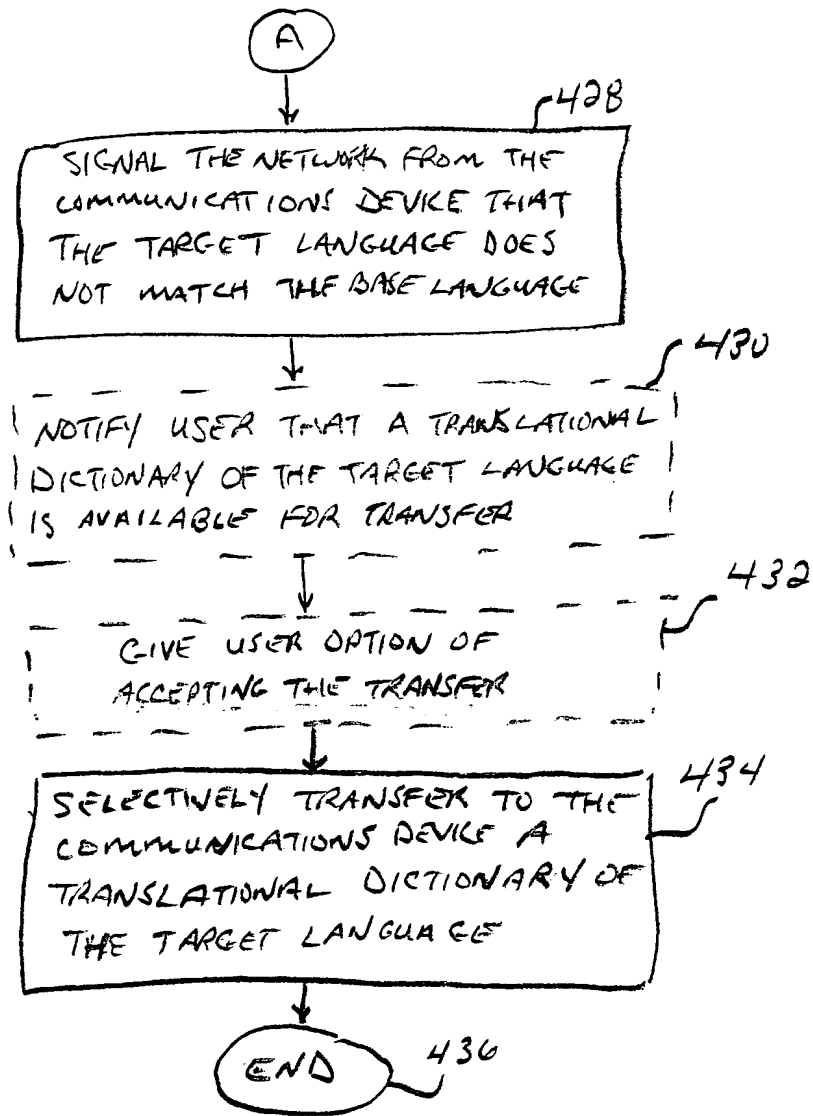 A
428
SIGNAL THE NETWORK FROM THE
COMMUNICATIONS DEVICE THAT
THE TARGET LANGUAGE DOES
NOT MATCH THE BASE LANGUAGE
430
NOTIFY USER THAT A TRANSLATIONAL
DICTIONARY OF THE TARGET LANGUAGE
IS AVAILABLE FOR TRANSFER
432
GIVE USER OPTION OF
ACCEPTING THE TRANSFER
434
SELECTIVELY TRANSFER TO THE
COMMUNICATIONS DEVICE A
TRANSLATIONAL DICTIONARY OF
THE TARGET LANGUAGE
END
436